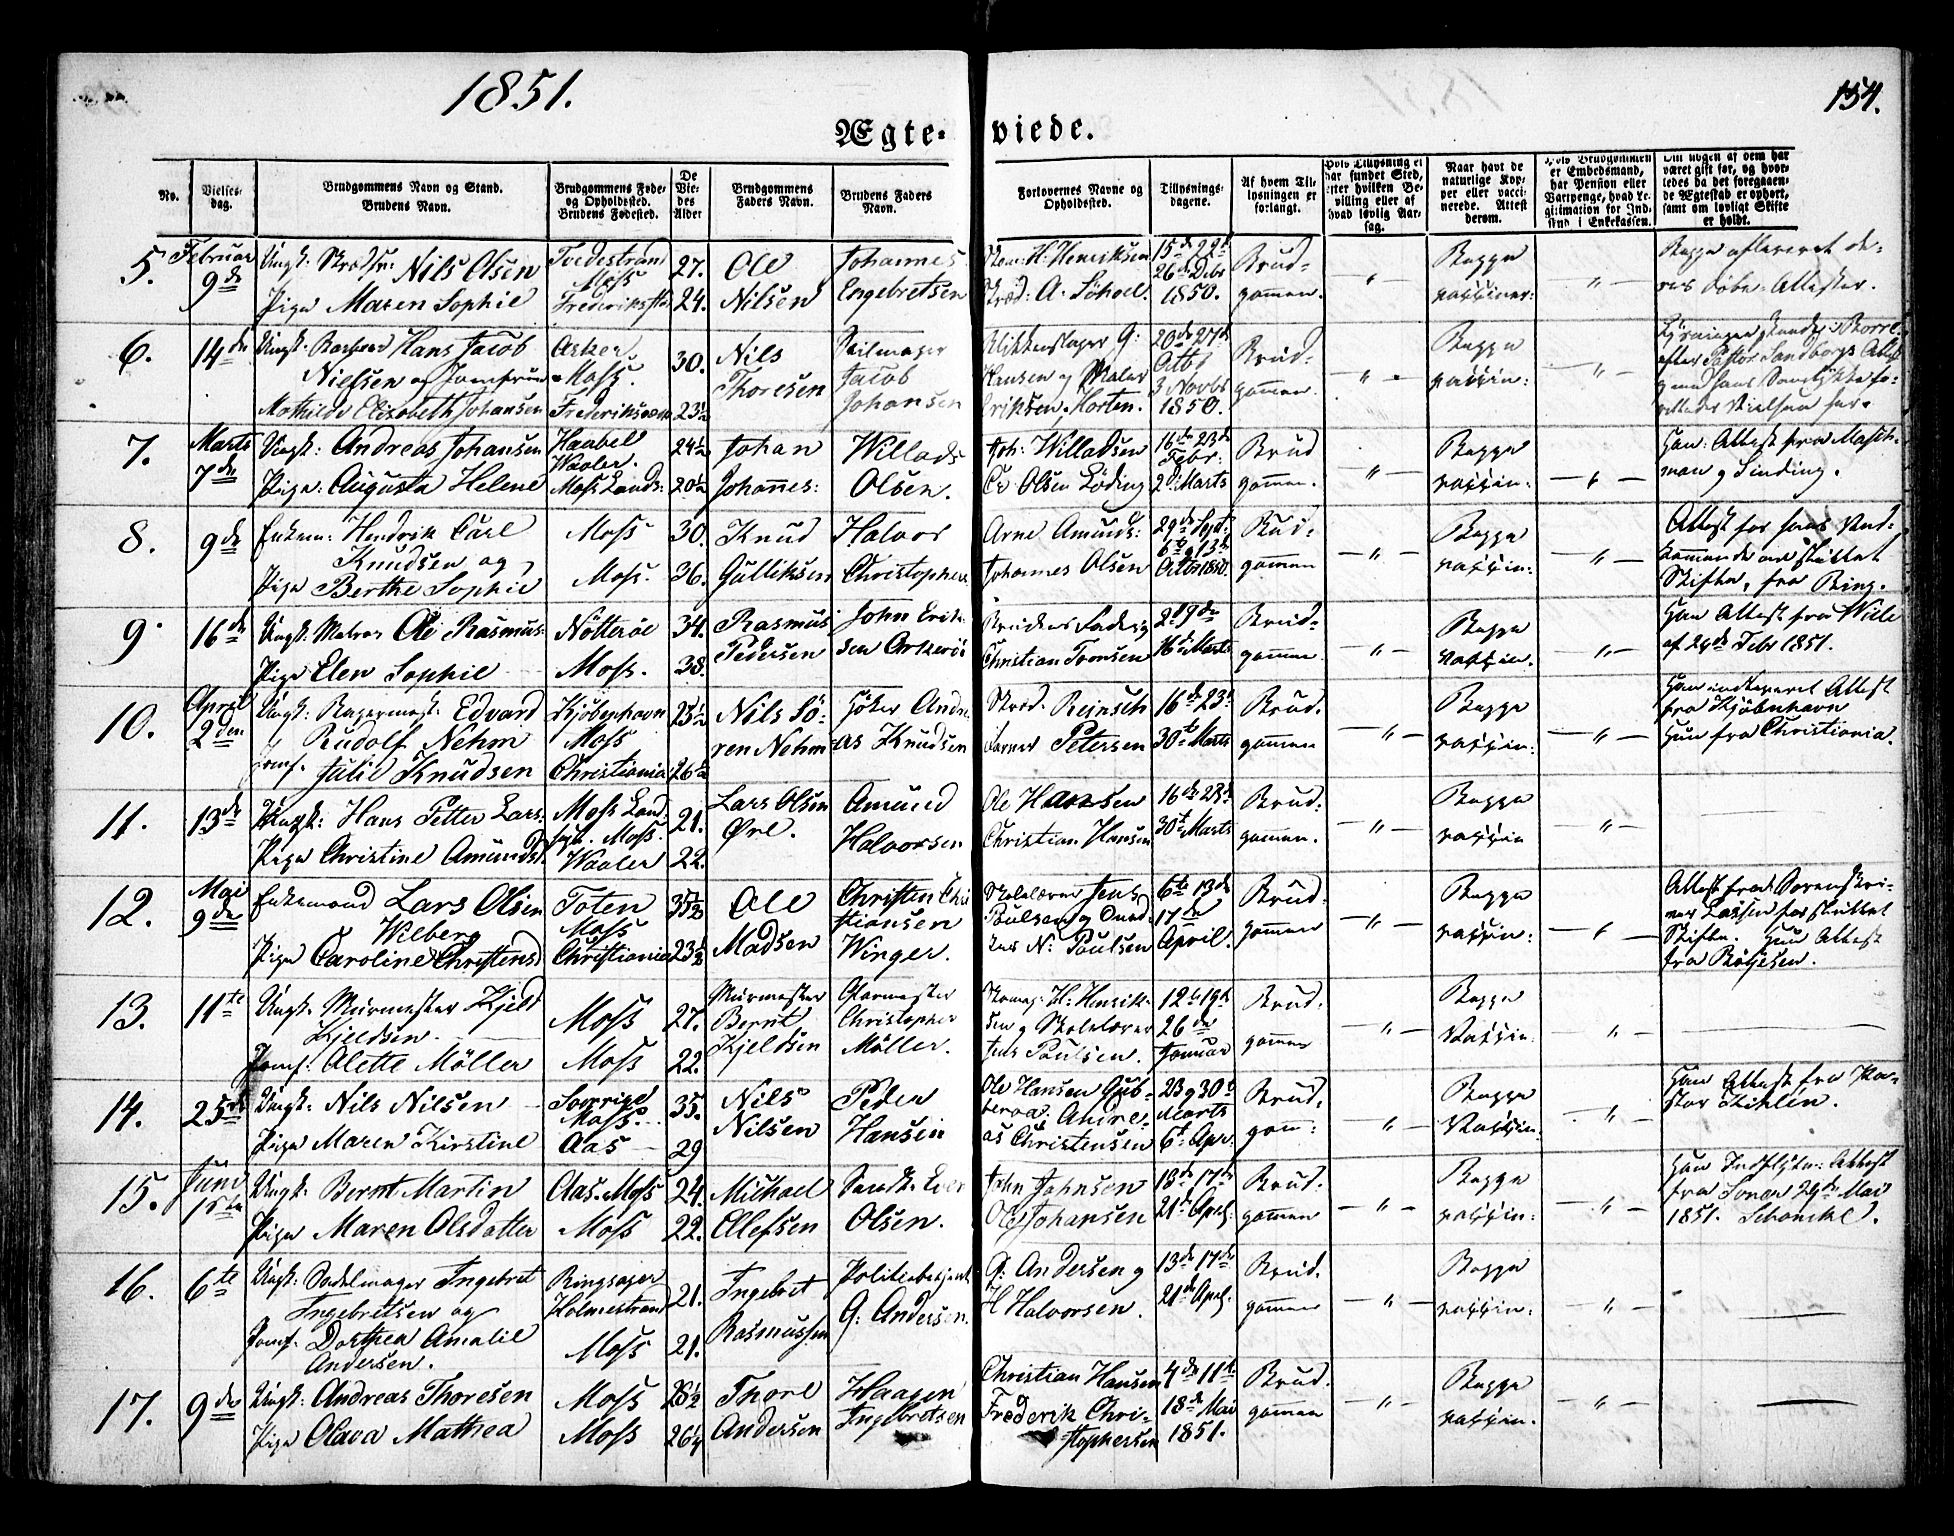 1851.
154.
Ægte-viede.
No.
Vielses-dag.
Brudgommens Navn og Stand.
Brudens Navn.
Brudgommens Føde-
og Opholdssted.
Brudens Fødested.
De
Vie-
des
Alder
Brudgommens
Faders Navn.
Brudens Faders
Navn.
Forlovernes Navne og
Opholdssted.
Tillysnings-
dagene.
Af hvem Til-
lysningen er
forlangt.
Hvis Tillysning ei
har fundet Sted,
efter hvilken Be-
villing eller af
hvad lovlig Aar-
sag.
Naar havt de
naturlige Kop-
per eller vacci-
nerede. Attest
derom.
Hvis Brudgommen
er Embedsmand,
har Pension eller
Vartpenge, hvad Le-
gitimation for Ind-
skud i Enkekassen.
Om nogen af dem har
været gift før, og hvor-
ledes da det foregaaen-
de Ægteskab er ophørt,
samt om lovligt Skifte
er holdt.
5. Februar 9de
Ungk: Nils Olsen
Pige Maren Sophie
Tvedestrand
Moss
Fredrikstad
27.
24.
Ole
Nilsen
Johannes
Engebretsen
H. Henriksen
15de 22d
26de Debr
1850.
Brud-
gommen.
Begge
vacciner:
Begge afleveret de-
res Døbe-Attester.
6. 14de
Ungk: Hans Jacob
Nielsen og Jomfrue
Mathilde Elizabeth Johansen
Asker
Moss.
30.
23½
Nils
Thoresen
Seilmager
Jacob
Johansen
G:
Hansen og Maler
Eriksen. Horten.
20de 27de
Octb
3 Novbr
1850.
Brud-
gommen.
Begge
vaccin:
7. Marts 7de
Ungk: Andreas Johansen
Pige: Augusta Helene
Haabel
Waaler.
Moss Lands:
24½
20½
Johan
Johannes:
Willads
Olsen.
Joh: Willadsen
Olsen
16de 23de
Febr:
2d Marts
Brud
gommen.
Begge
vaccin:
Han: Attest fra Masch-
man og Sinding.
8. 9de
Enkem: Hendrik Carl
Knudsen og
Pige Berthe Sophie
Moss
Moss.
30.
36.
Knud
Gulliksen
Halvor
Christophers
Arne Amunds:
Johannes Olsen
29de Sept:
6te 13de
Octbr 1850.
Brud-
gommen
Begge
vaccin:
Attest for hans Ved-
kommende om sluttet
Skifte, fra Bing.
9. 16de
Ungk: Matros Ole Rasmus:
Pige Elen Sophie
Nötteröe
Moss.
34.
38.
Rasmus
Pedersen
John Erik-
sen
Brudens Fader og
Christian
2 9de
16de Marts
Brud-
gommen.
Begge
vaccin.
Han Attest fra
af 24de Febr 1851.
10. April 2den
Ungk: Edvard
Rudolf Nehm
Jomf. Julie Knudsen
Kjöbenhavn
Moss
Christiania
25½
26½
Nils Sö-
ren Nehm
Höker Andre-
as Knudsen
Petersen
16de 23de
30te Marts
Brud.
gommen.
Begge
vaccin:
Han indleveret Attest
fra Kjöbenhavn
Hun fra Christiania.
11. 13de
Ungk: Hans Petter Lars.
Pige Christine Amunds.
Moss Land
Moss.
Waaler
21.
22.
Lars Olsen
Øre.
Amund
Halvorsen
Ole Hansen
Christian Hansen
16de 23de
30te Marts
Brud:
gommen.
Begge
vaccin
12. Mai 9de
Enkemand Lars Olsen
Wilberg
Pige Caroline Christens
Toten
Moss
Christiania
35½
23½
Ole
Madsen
Christen Chri-
stiansen
Winger.
Skolelærer Jens
Poulsen og
N: Poulsen
6te 13de
17de
April.
Brud.
gommen
Begge
vaccin:
Attest fra Sorenskri-
ver Lassen for sluttet
Skifte. Hun Attest
fra
13. 11te
Ungk. Murmester Kjeld
Kjeldsen.
Jomf: Alette Möller
Moss
Moss
27.
22.
Murmester
Bernt
Kjeldsen
Glarmester
Christopher
Möller.
H: Henrik-
sen og Skolelærer
Jens Poulsen.
12te 19de
26de
Januar
Brud.
gommen
Begge
Vaccin:
14. 25de
Ungk. Nils Nilsen
Pige Maren Kirstine
Sverrige
Moss.
Aas
35.
29
Nils
Nilsen
Peder
Hansen
Ole Hansen
Andre-
as Christensen
23 og 30te
Marts
6te Apr:
Brud:
gom:
Begge
Vaccin:
Han Attest fra Pa-
stor
15. Juni 1ste
Ungk: Bernt Martin
Pige Maren Olsdatter
Aas. Moss
Moss
24.
22.
Michael
Ellefsen
Olsen.
John Johnsen
Ole Johansen
13de 17de
21de April.
Brud.
gommen
Begge
vaccin:
Han Indflytn: Attest
fra 29de Mai
1851.
16. 6te
Ungk: Sadelmager Ingebret
Ingebretsen og
Jomf. Dorthea Amalie
Andersen.
Ringsager
Holmestrand
Moss
21.
21.
Ingebret
Rasmussen
Politiebetjent
G: Andersen.
G: Andersen og
H Halvorsen.
13de 17de
21de April.
Brud.
gommen
Begge
vaccin:
17. 9de
Ungk: Andreas Thoresen
Pige Olava Mathea
Moss
Moss
28½
26¼
Thore
Andersen
Haagen
Ingebretsen
Christian Hansen
Frederik Chri-
stophersen
4de 11te
18de Mai
1851.
Brud.
gommen
Begge
vaccin.